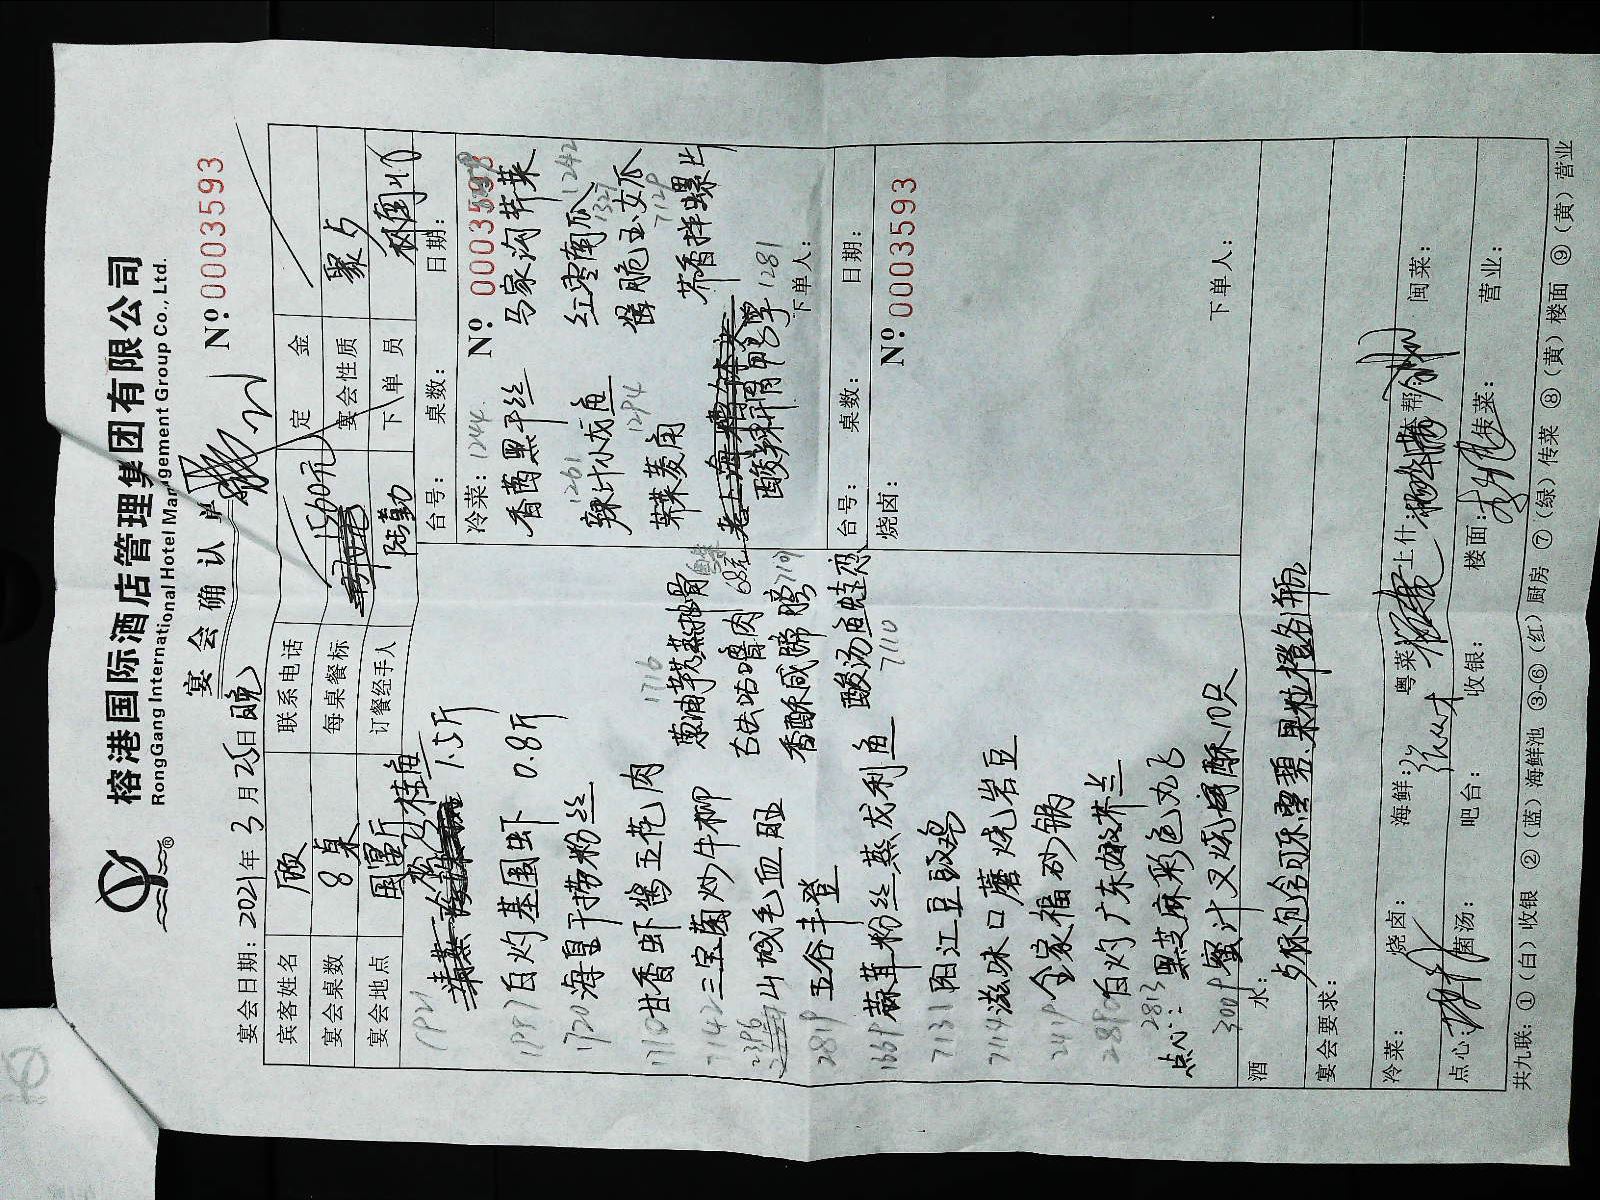 榕港国际酒店管理集团有限公司
RongGang International Hotel Management Group Co., Ltd.
宴会确认单
宴会日期：2021年3月25日晚
Nº 0003593
宾客姓名 顾 联系电话 定金
宴会桌数 8桌 每桌餐标 1500元 宴会性质 聚与
宴会地点 国宴厅 订餐经手人 陆勤 下单员
台号： 桌数： 日期：
冷菜： 1244 Nº 0003593
香茜黑干丝 马家沟芹菜
1261 1242
辣汁小龙鱼 红枣南瓜
1294 1327
荠菜菱角 酱脆玉女瓜
7129
芥香拌螺片
酸辣科甲鸭掌 1281
下单人：
桂鱼 1.5斤
白灼基围虾 0.8斤
1720 海皇干捞粉丝
甘香虾酱五花肉
7142 三宝菌炒牛柳
山城毛血旺
2819 五谷丰登
1669 蒜茸粉丝蒸龙利鱼
7131 阳江豆豉鸡
7114 滋味口蘑烧岩豆
2419 全家福砂锅
白灼广东菜芯
2813
点心： 黑芝麻彩色丸子
3019 蜜汁叉烧酥10只
1716
葱油芋艿蒸排骨
古法咕嚕肉 68元
香酥咸蹄膀 7101
酸汤鱼蛙忽
7110
台号： 桌数： 日期：
烧卤： Nº 0003593
下单人：
酒水：
宴会要求： 每桌包含可乐.雪碧.果粒橙各1瓶
冷菜： 烧卤： 海鲜： 粤菜： 上什： 本帮： 闽菜：
点心： 菌汤： 吧台： 收银： 楼面： 传菜： 营业：
共九联：①（白）收银 ②（蓝）海鲜池 ③-⑥（红）厨房 ⑦（绿）传菜 ⑧（黄）楼面 ⑨（黄）营业